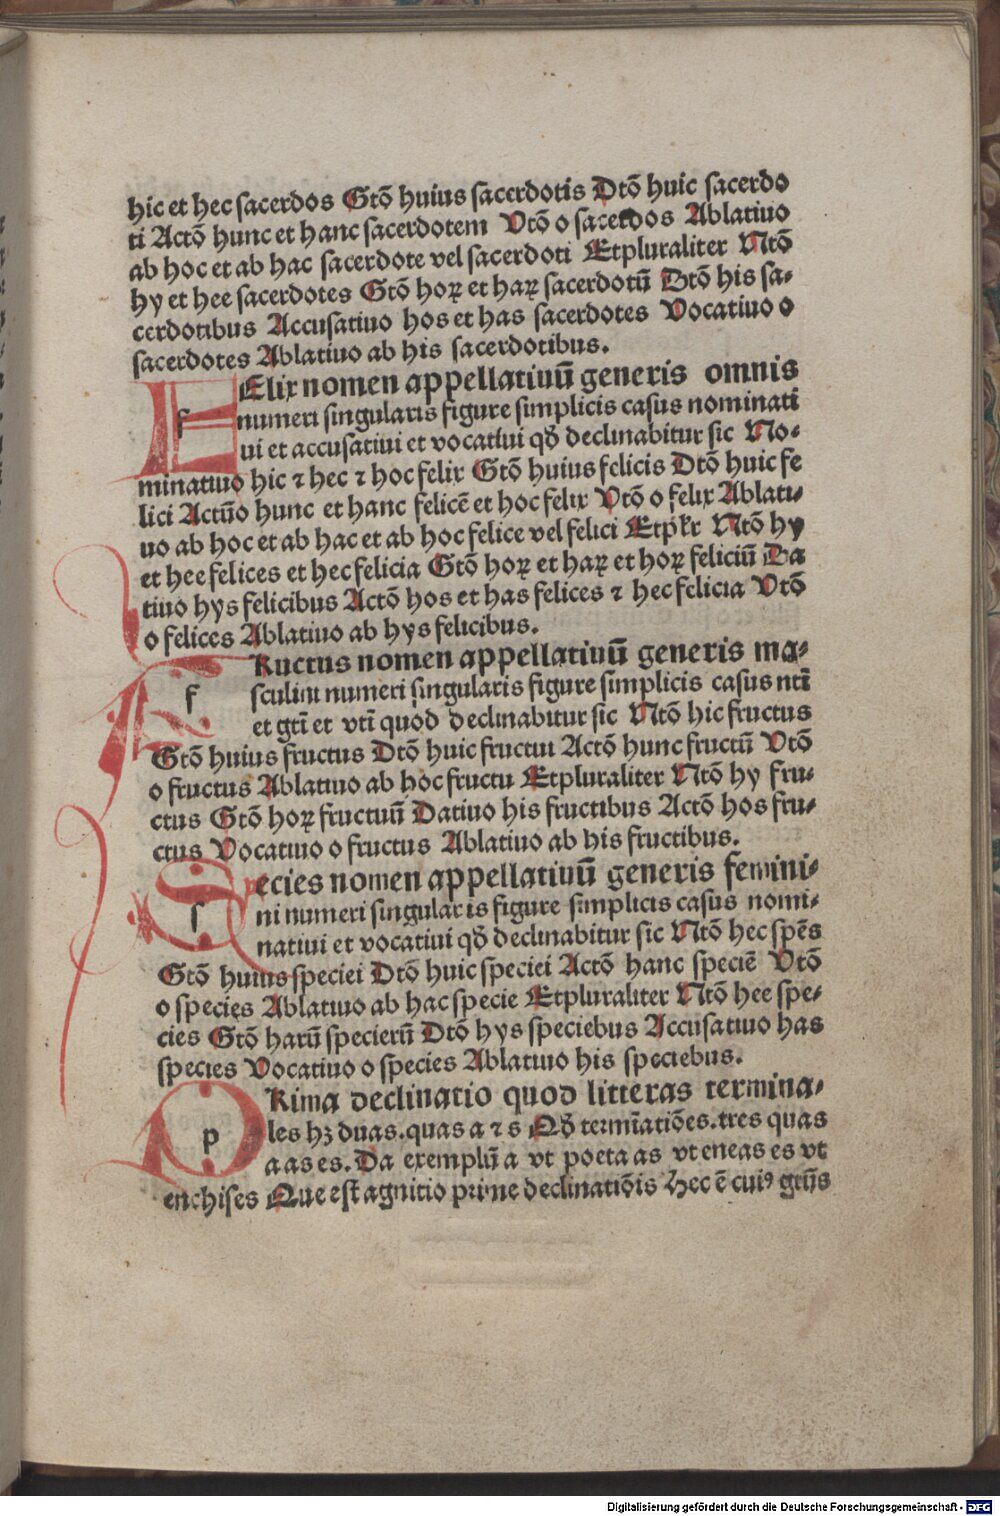 hic et hec sacerdos Gtō huius sacerdotis Dtō huic sacerdo
ti Actō hunc et hanc sacerdotem Vtō o sacerdos Ablatiuo
ab hoc et ab hac sacerdote vel sacerdoti Etpluraliter Ntō
hy et hee sacerdotes Gtō hoꝝ et haꝝ sacerdotū Dtō his sa-
cerdotibus Accusatiuo hos et has sacerdotes Vocatiuo o
sacerdotes Ablatiuo ab his sacerdotibus.
f Elix nomen appellatiuū generis omnis
numeri singularis figure simplicis casus nominati
ui et accusatiui et vocatiui qđ declinabitur sic No-
minatiuo hic ⁊ hec ⁊ hoc felix Gtō huius felicis Dtō huic fe
lici Actūo hunc et hanc felicē et hoc felix Vtō o felix Ablati-
uo ab hoc et ab hac et ab hoc felice vel felici Etpłr Ntō hy
et hee felices et hec felicia Gtō hoꝝ et haꝝ et hoꝝ feliciū Da
tiuo hys felicibus Actō hos et has felices ⁊ hec felicia Vtō
o felices Ablatiuo ab hys felicibus.
f Ructus nomen appellatiuū generis ma-
sculini numeri singularis figure simplicis casus ntī
et gtī et vtī quod declinabitur sic Ntō hic fructus
Gtō huius fructus Dtō huic fructui Actō hunc fructū Vtō
o fructus Ablatiuo ab hoc fructu Etpluraliter Ntō hy fru-
ctus Gtō hoꝝ fructuū Datiuo his fructibus Actō hos fru-
ctus Vocatiuo o fructus Ablatiuo ab his fructibus.
s pecies nomen appellatiuū generis femini-
ni numeri singularis figure simplicis casus nomi-
natiui et vocatiui qđ declinabitur sic Ntō hec spēs
Gtō huius speciei Dtō huic speciei Actō hanc speciē Vtō
o species Ablatiuo ab hac specie Etpluraliter Ntō hee spe-
cies Gtō harū specierū Dtō hys speciebus Accusatiuo has
species Vocatiuo o species Ablatiuo his speciebus.
p Rima declinatio quod litteras termina-
les hꝫ duas.quas a ⁊ s Qđ termīatiōes.tres quas
a as es. Da exemplū a vt poeta as vt eneas es vt
enchises Que est agnitio prime declinatiōis Hec ē cuiꝰ gtijs
Digitalisierung gefördert durch die Deutsche Forschungsgemeinschaft - DFG